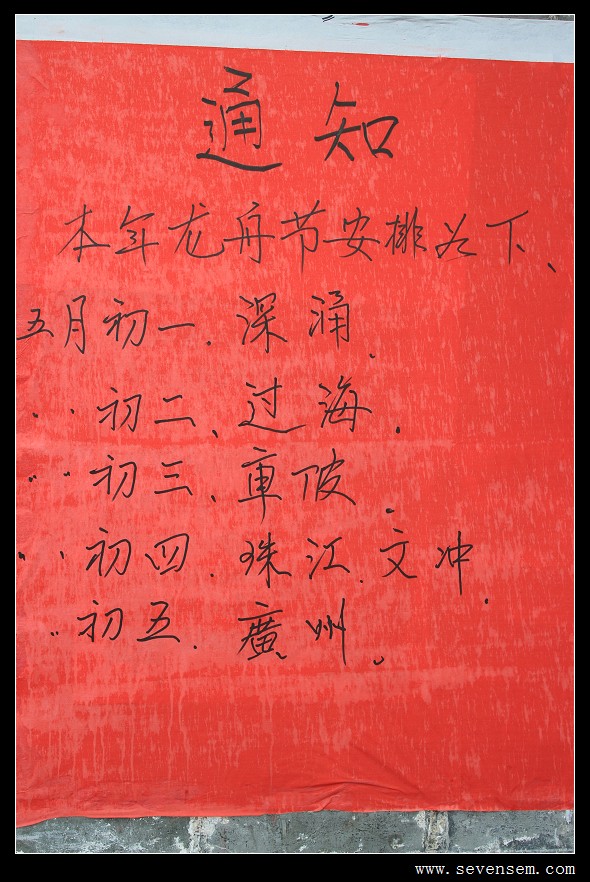 通知
本年龙舟节安排如下、
五月初一.深涌.
〃初二、过海.
〃初三、車陂.
〃初四.珠江.文冲.
〃初五.廣州.
www.sevensem.com